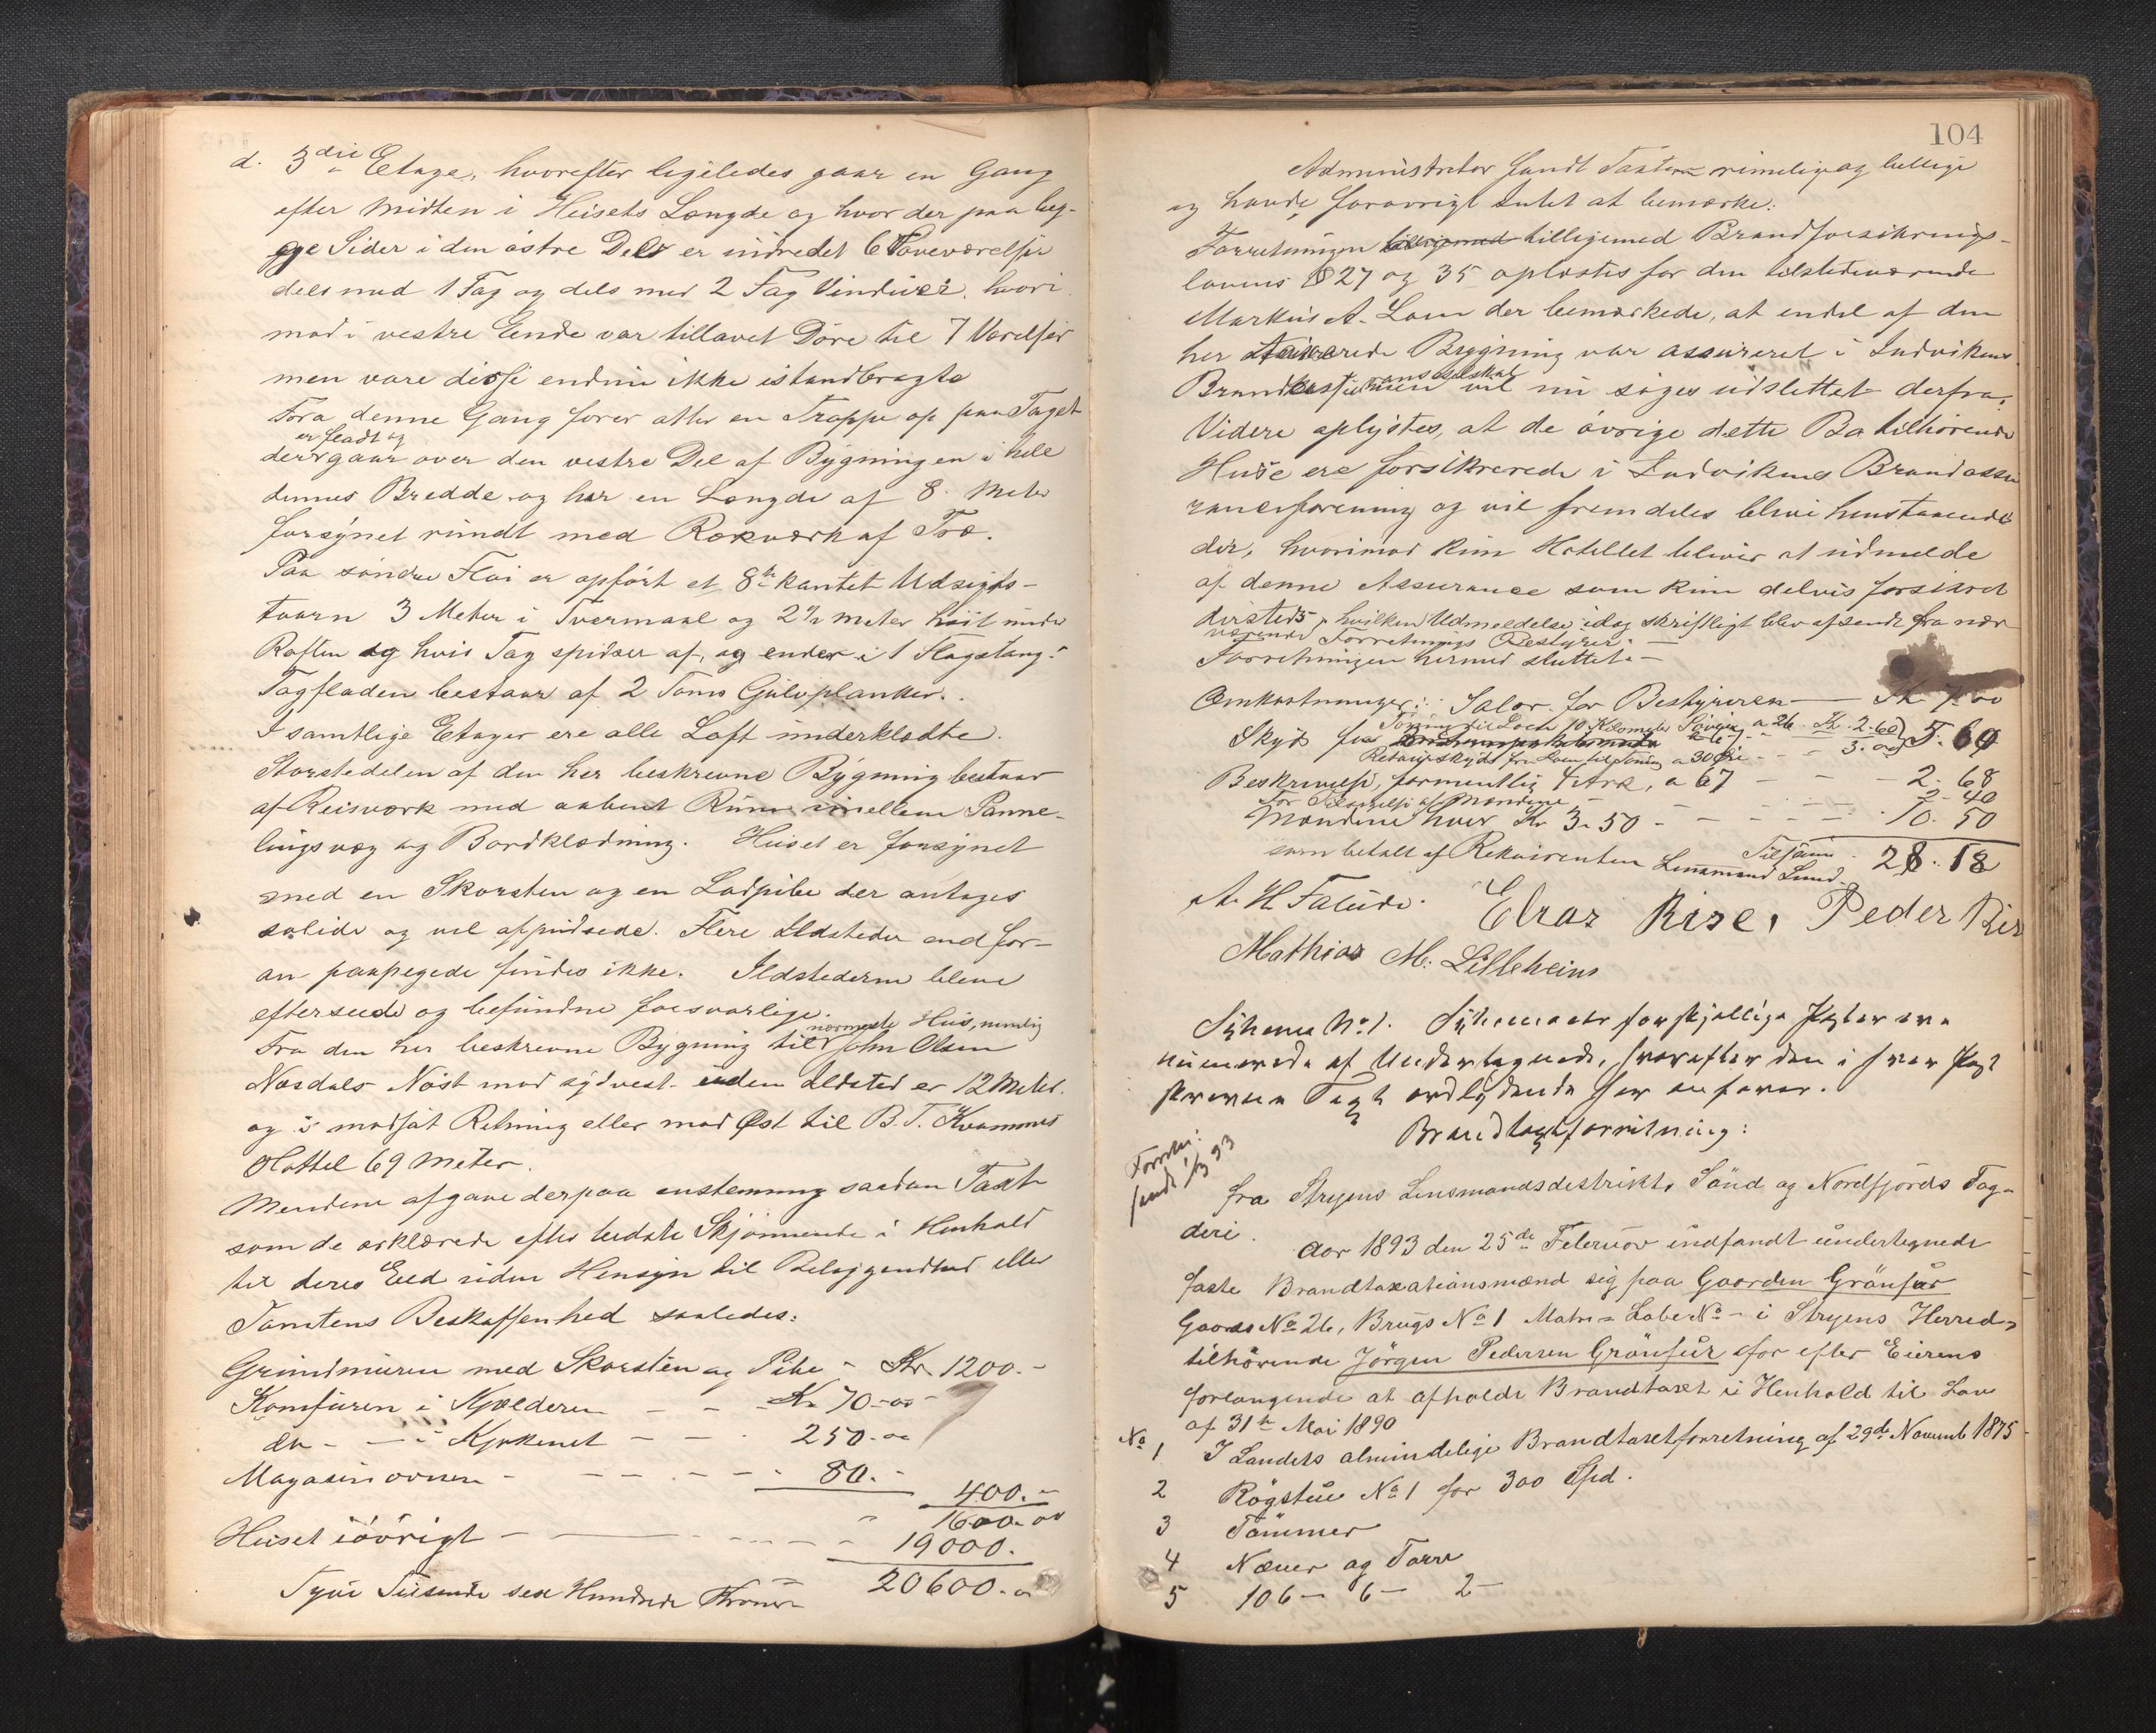 d. 3die Etage, hvorefter ligeledes gaar en Gang
efter Midten i Husets Længde og hvor der paa beg-
ge Sider i den östre Del er indredet 6 Soveværelser
dels med 1 Fag og dels med 2 Fag Vinduer. hvori
mod i vestre Ende var tillavet Döre til 7 Værelser
men vare disse endnu ikke istandbragte
Fra denne Gang förer atter en Trappe op paa Taget
er fladt og
der gaar over den vestre Del af Bygningen i hele
dennes Bredde og har en Længde af 8 Meter
forsÿnet rundt med Rækværk af Træ.
Paa söndre Flöi er opfört et 8te kantet Udsigts-
taarn 3 Meter i Tvermaal og 2½ meter höit under
Raften og hvis Tag spidser af, og ender i 1 Flagstang.
Tagfladen bestaar af 2 Toms Gulvplanker.
I samtlige Etager ere alle Loft underklædte.
Storstedelen af den her beskrevne Bÿgning bestaar
af Reisværk med aabent Rum imellem Panne-
lings væg og Bordklædning. Huset er forsÿnet
med en Skorsten og en Ladpibe der antages
solide og vel afpudsede. Flere Ildsteder end for-
an paapegede findes ikke. Ildstederne bleve
efterseede og befundne forsvarlige.
nærmeste Hus, nemlig
Fra den her beskrevne Bygning til John Olsen
Næsdals Nöst mod sÿdvest uden Ildsted er 12 Meter.
og i modsat Retning eller mod Øst til B. T. Kvammes
Hottel 69 Meter.
Mændene afgave derpaa enstemmig saadan Taxt
som de erklærede efter bedste Skjönnende i Henhold
til deres Eed uden Hensyn til Beliggendhed eller
Tomtens Beskaffenhed saaledes:
Grundmuren med Skorsten og Pibe - Kr. 1200.-
Komfuren i Kjælderen - - Kr 70-00
do - - i Kjökenet - - 250-00
Magasin ovnen - - - - 80.-
400.-
1600.00
Huset iövrigt - 19000.
Tyve Tusende sex Hundrede Kroner 20600.00
104
Administrator fandt Taxten rimelig og billige
og havde forövrigt Intet at bemærke.
Forretningen tilligemed tilligemed Brandforsikrings-
lovens § 27 og 35 oplæstes for den tilstedeværende
Markus A. Loen der bemærkede, at endel af den
her taxerede Bygning var assureret i Indvikens
Brandassuranseselskab men vil nu söges udslettet derfra.
Videre oplÿstes, at de övrige dette Bo tilhörende
Huse ere forsikrerede i Indvikens Brandassu
ranceforening og vil fremdeles blive henstaaende
der, hvorimod kun Hotellet bliver at udmelde
af denne Assurance som kun delvis forsikret
dersteds, hvilken Udmeldelse idag skriftligt blev afsendt fra nær
værende Forretnings Bestyrer.-
Forretningen hermed sluttet.-
Omkostninger: Salær for Bestyreren - Kr 7.00
Skÿds fra Tonning til Loen 10 Kilometer Söveien a 26 Kr. 2.60
5.60
Retourskÿds fra Loen til Tonning a 30 Öre - - 3.00
Beskrivelse, formentlig 4 Ark, a 67 - - - 2.68
For Tilsigelse af Mændene - - 2.40
Mændene hver Kr 3.50 - - - - - 10.50
Tilsam 28.18
som betalt af Rekvirenten Lensmand Lund
A. H. Faleide. Elias Rise, Peder Rise
Mathias M. Lilleheim
Schema No 1. Schemaets forskjellige Poster ere
numerede af Undertegnede, hvorefter den i hver Post
skrevne Text ordlydende her anföres.
Brandtaxtforretning:
fra Stryens Lensmandsdistrikt, Sönd og Nordfjords Fog-
deri.
Aar 1893 den 25de Februar indfandt undertegnede
faste Brandtaxationsmænd sig paa Gaarden Grönfur
Gaards No 26, Brugs No 1 Matr. Löbe No - i Stryens Herred,
tilhörende Jörgen Pedersen Grönfur for efter Eierens
forlangende at afholde Brandtaxt i Henhold til Lov
af 31te Mai 1890
No 1 I Landets almindelige Brandtaxtforretning af 29de Novemb 1875
2 Rögstue No 1 for 300 Spd.
3 Tömmer
4 Næver og Torv
5 106- 6- 2-